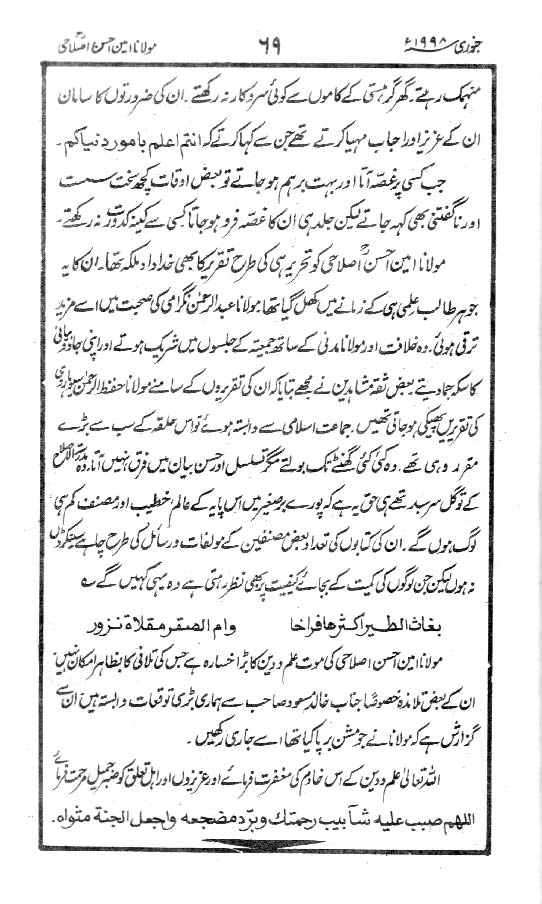 جنوری ۱۹۹۸ء ۶۹ مولانا امین احسن اصلاحیؒ
منہمک رہتے۔ گھر گرہستی کے کاموں سے کوئی سروکار نہ رکھتے۔ ان کی ضرورتوں کا سامان
ان کے عزیز اور احباب مہیا کرتے تھے جن سے کہا کرتے کہ انتم اعلم بامور دنیاکم۔
جب کسی پر غصّہ آتا اور بہت برہم ہو جاتے تو بعض اوقات کچھ سخت سست
اور ناگفتنی بھی کہہ جاتے لیکن جلد ہی ان کا غصّہ فرو ہو جاتا کسی سے کینہ کدورت نہ رکھتے۔
مولانا امین احسن اصلاحیؒ کو تحریر ہی کی طرح تقریر کا بھی خداداد ملکہ تھا۔ ان کا یہ
جوہر طالب علمی ہی کے زمانے میں کھل گیا تھا۔ مولانا عبدالرحمٰن نگرامی کی صحبت میں اسے مزید
ترقی ہوئی، وہ خلافت اور مولانا مدنی کے ساتھ جمیعتہ کے جلسوں میں شریک ہوتے اور اپنی جادو بیانی
کا سکہ جما دیتے۔ بعض ثقہ شاہدین نے مجھے بتایا کہ ان کی تقریروں کے سامنے مولانا حفظ الرحمٰن سیوہاروی
کی تقریریں پھیکی ہو جاتی تھیں۔ جماعت اسلامی سے وابستہ ہوئے تو اس حلقہ کے سب سے بڑے
مقرر وہی تھے۔ وہ کئی کئی گھنٹے تک بولتے مگر تسلسل اور حسن بیان میں فرق نہیں آتا، وہ مدرسۃ الاصلاح
کے تو گل سرسبد تھے ہی حق یہ ہے کہ پورے برصغیر میں اس پایہ کے عالم، خطیب اور مصنف کم ہی
لوگ ہوں گے۔ ان کی کتابوں کی تعداد بعض مصنفین کے مولفات و رسائل کی طرح چاہے سینکڑوں
نہ ہوں لیکن جن لوگوں کی کمیت کے بجائے کیفیت پر بھی نظر رہتی ہے وہ یہی کہیں گے ؎
بغاث الطیر اکثرھا فراخا وام الصقر مقلاۃ نزور
مولانا امین احسن اصلاحی کی موت علم و دین کا بڑا خسارہ ہے جس کی تلافی کا بظاہر امکان نہیں،
ان کے بعض تلامذہ خصوصاً جناب خالد مسعود صاحب سے ہماری بڑی توقعات وابستہ ہیں ان سے
گزارش ہے کہ مولانا نے جو مشن برپا کیا تھا اسے جاری رکھیں۔
اللہ تعالیٰ علم و دین کے اس خادم کی مغفرت فرمائے اور عزیزوں اور اہل تعلق کو صبر جمیل مرحمت فرمائے
اللھم صبب علیہ شآبیب رحمتك وبرّد مضجعہ واجعل الجنۃ مثواہ۔